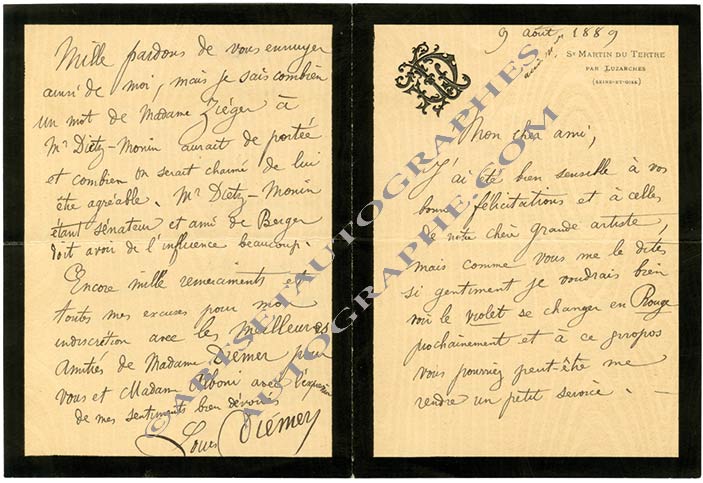 9 août 1889
St MARTIN DU TERTRE
PAR LUZARCHES
(SEINE-ET-OISE)
Mon cher ami,
J'ai été bien sensible à vos
bonnes félicitations et à celles
de votre chère grande artiste,
mais comme vous me le dites
si gentiment je voudrais bien
voir le violet se changer en Rouge
prochainement et à ce propos
vous pourriez peut-être me
rendre un petit service. —
Mille pardons de vous ennuyer
ainsi de moi, mais je sais combien
un mot de Madame Ziéger à
Mr Dietz-Monin aurait de portée
et combien on serait charmé de lui
être agréable. Mr Dietz-Monin
étant sénateur et ami de Berger
doit avoir de l'influence beaucoup.
Encore mille remerciments et
toutes mes excuses pour mon
indiscrétion avec les meilleures
amitiés de Madame Diémer pour
vous et Madame Uboni avec l'expression
de mes sentiments bien dévoués
Louis Diémer
© ABLSETAUTOGRAPHES
AUTOGRAPHE.COM